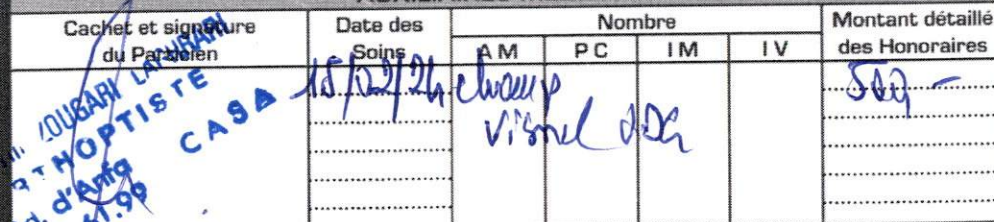 Cachet et signature
du Praticien
Date des
Soins
Nombre
AM PC IM IV
Montant détaillé
des Honoraires
LOUGARI LAHRARI
ORTHOPTISTE
d'Anfa CASA
15/02/24 champ
visuel ODG
500 -